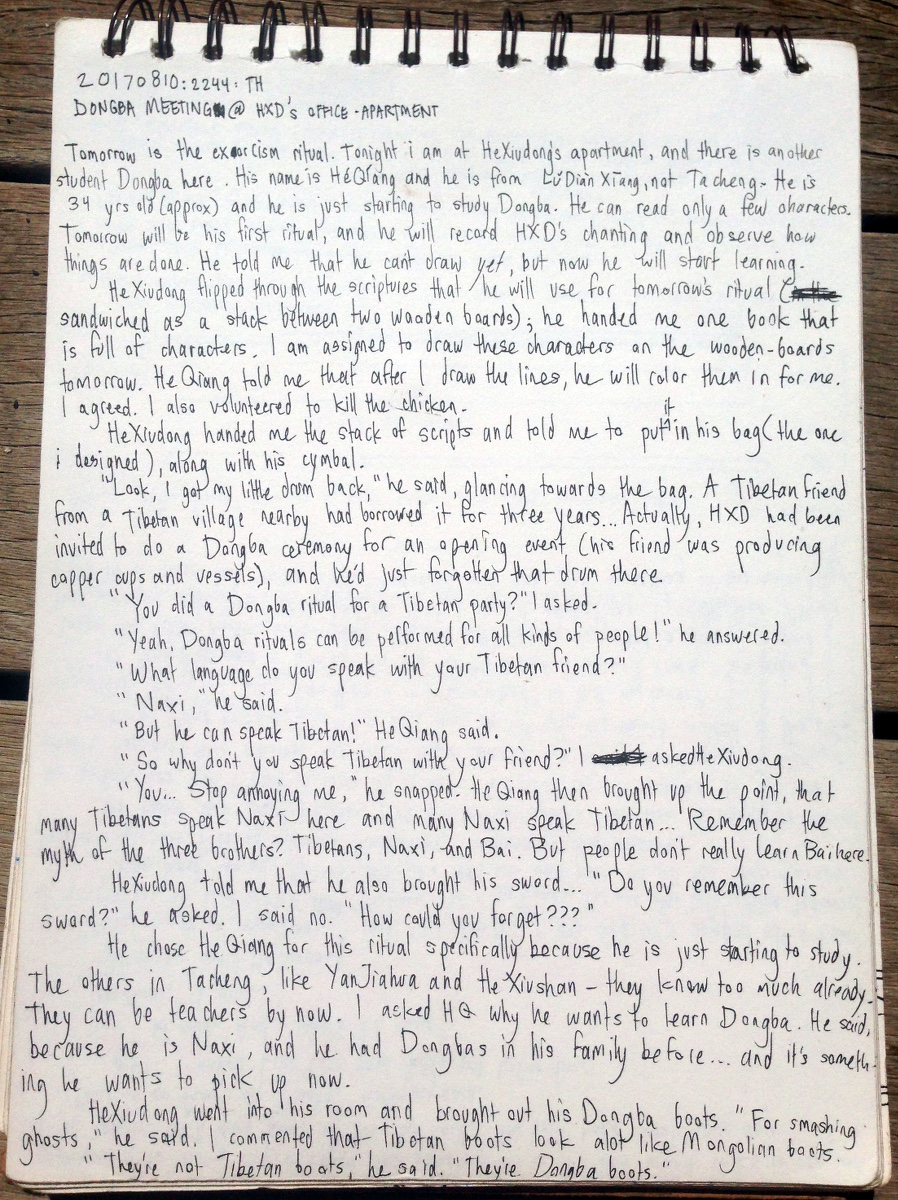 20170810:2244: TH
DONGBA MEETING @ HXD'S OFFICE-APARTMENT
Tomorrow is the exorcism ritual. Tonight i am at HeXiudong's apartment, and there is another
student Dongba here. His name is HéQiáng and he is from LǔDiàn Xiāng, not Tacheng. He is
34 yrs old (approx) and he is just starting to study Dongba. He can read only a few characters.
Tomorrow will be his first ritual, and he will record HXD's chanting and observe how
things are done. He told me that he can't draw yet, but now he will start learning.
HeXiudong flipped through the scriptures that he will use for tomorrow's ritual (
sandwiched as a stack between two wooden boards); he handed me one book that
is full of characters. I am assigned to draw these characters on the wooden-boards
tomorrow. HeQiang told me that after I draw the lines, he will color them in for me.
I agreed. I also volunteered to kill the chicken.
HeXiudong handed me the stack of scripts and told me to put it in his bag (the one
i designed), along with his cymbal.
"Look, I got my little drum back," he said, glancing towards the bag. A Tibetan friend
from a Tibetan village nearby had borrowed it for three years... Actually, HXD had been
invited to do a Dongba ceremony for an opening event (his friend was producing
copper cups and vessels), and he'd just forgotten that drum there.
"You did a Dongba ritual for a Tibetan party?" I asked.
"Yeah, Dongba rituals can be performed for all kinds of people!" he answered.
"What language do you speak with your Tibetan friend?"
"Naxi," he said.
"But he can speak Tibetan!" HeQiang said.
"So why don't you speak Tibetan with your friend?" I asked HeXiudong.
"You... Stop annoying me," he snapped. HeQiang then brought up the point, that
many Tibetans speak Naxi here and many Naxi speak Tibetan... Remember the
myth of the three brothers? Tibetans, Naxi, and Bai. But people don't really learn Bai here.
HeXiudong told me that he also brought his sword... "Do you remember this
sword?" he asked. I said no. "How could you forget???"
He chose HeQiang for this ritual specifically because he is just starting to study.
The others in Tacheng, like YanJiahua and HeXiushan - they know too much already.
They can be teachers by now. I asked HQ why he wants to learn Dongba. He said,
because he is Naxi, and he had Dongbas in his family before... and it's someth-
ing he wants to pick up now.
HeXiudong went into his room and brought out his Dongba boots. "For smashing
ghosts," he said. I commented that Tibetan boots look alot like Mongolian boots.
"They're not Tibetan boots," he said. "They're Dongba boots."